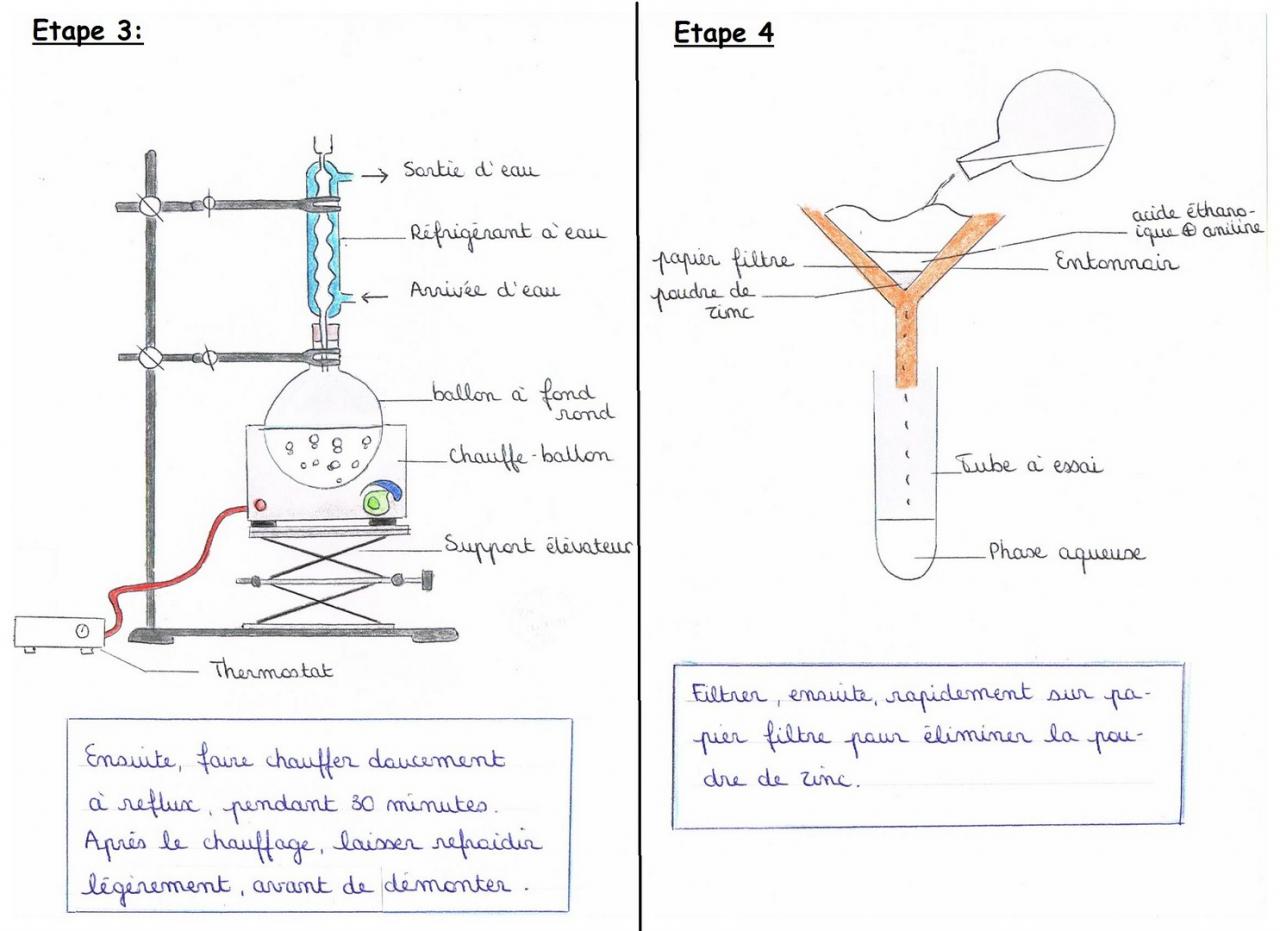 Etape 3:
Sortie d'eau
Réfrigérant à eau
Arrivée d'eau
ballon à fond
rond
Chauffe-ballon
Support élévateur
Thermostat
Ensuite, faire chauffer doucement
à reflux, pendant 30 minutes.
Après le chauffage, laisser refroidir
légèrement, avant de démonter.
Etape 4
acide éthano-
ique ⊕ aniline
papier filtre
Entonnoir
poudre de
zinc
Tube à essai
Phase aqueuse
Filtrer, ensuite, rapidement sur pa-
pier filtre pour éliminer la pou-
dre de zinc.